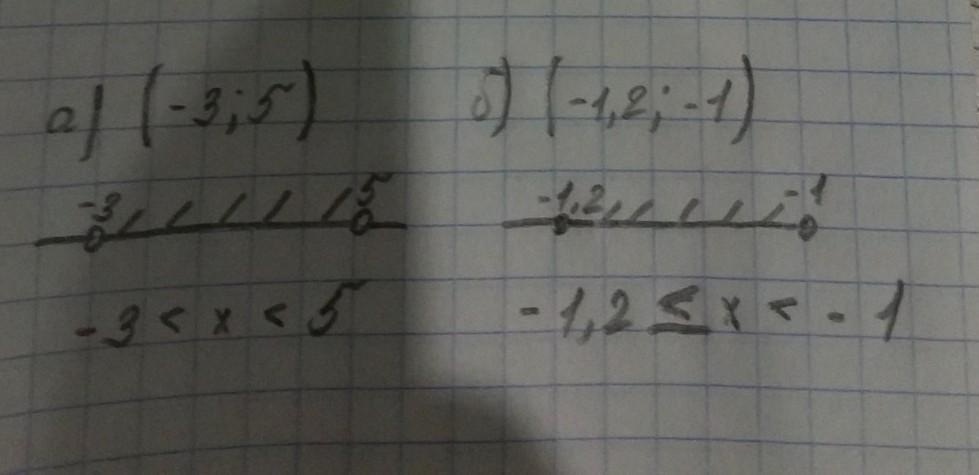 а) (-3; 5)
б) (-1,2; -1)
-3 5
-1,2 -1
-3 < x < 5
-1,2 ≤ x < -1